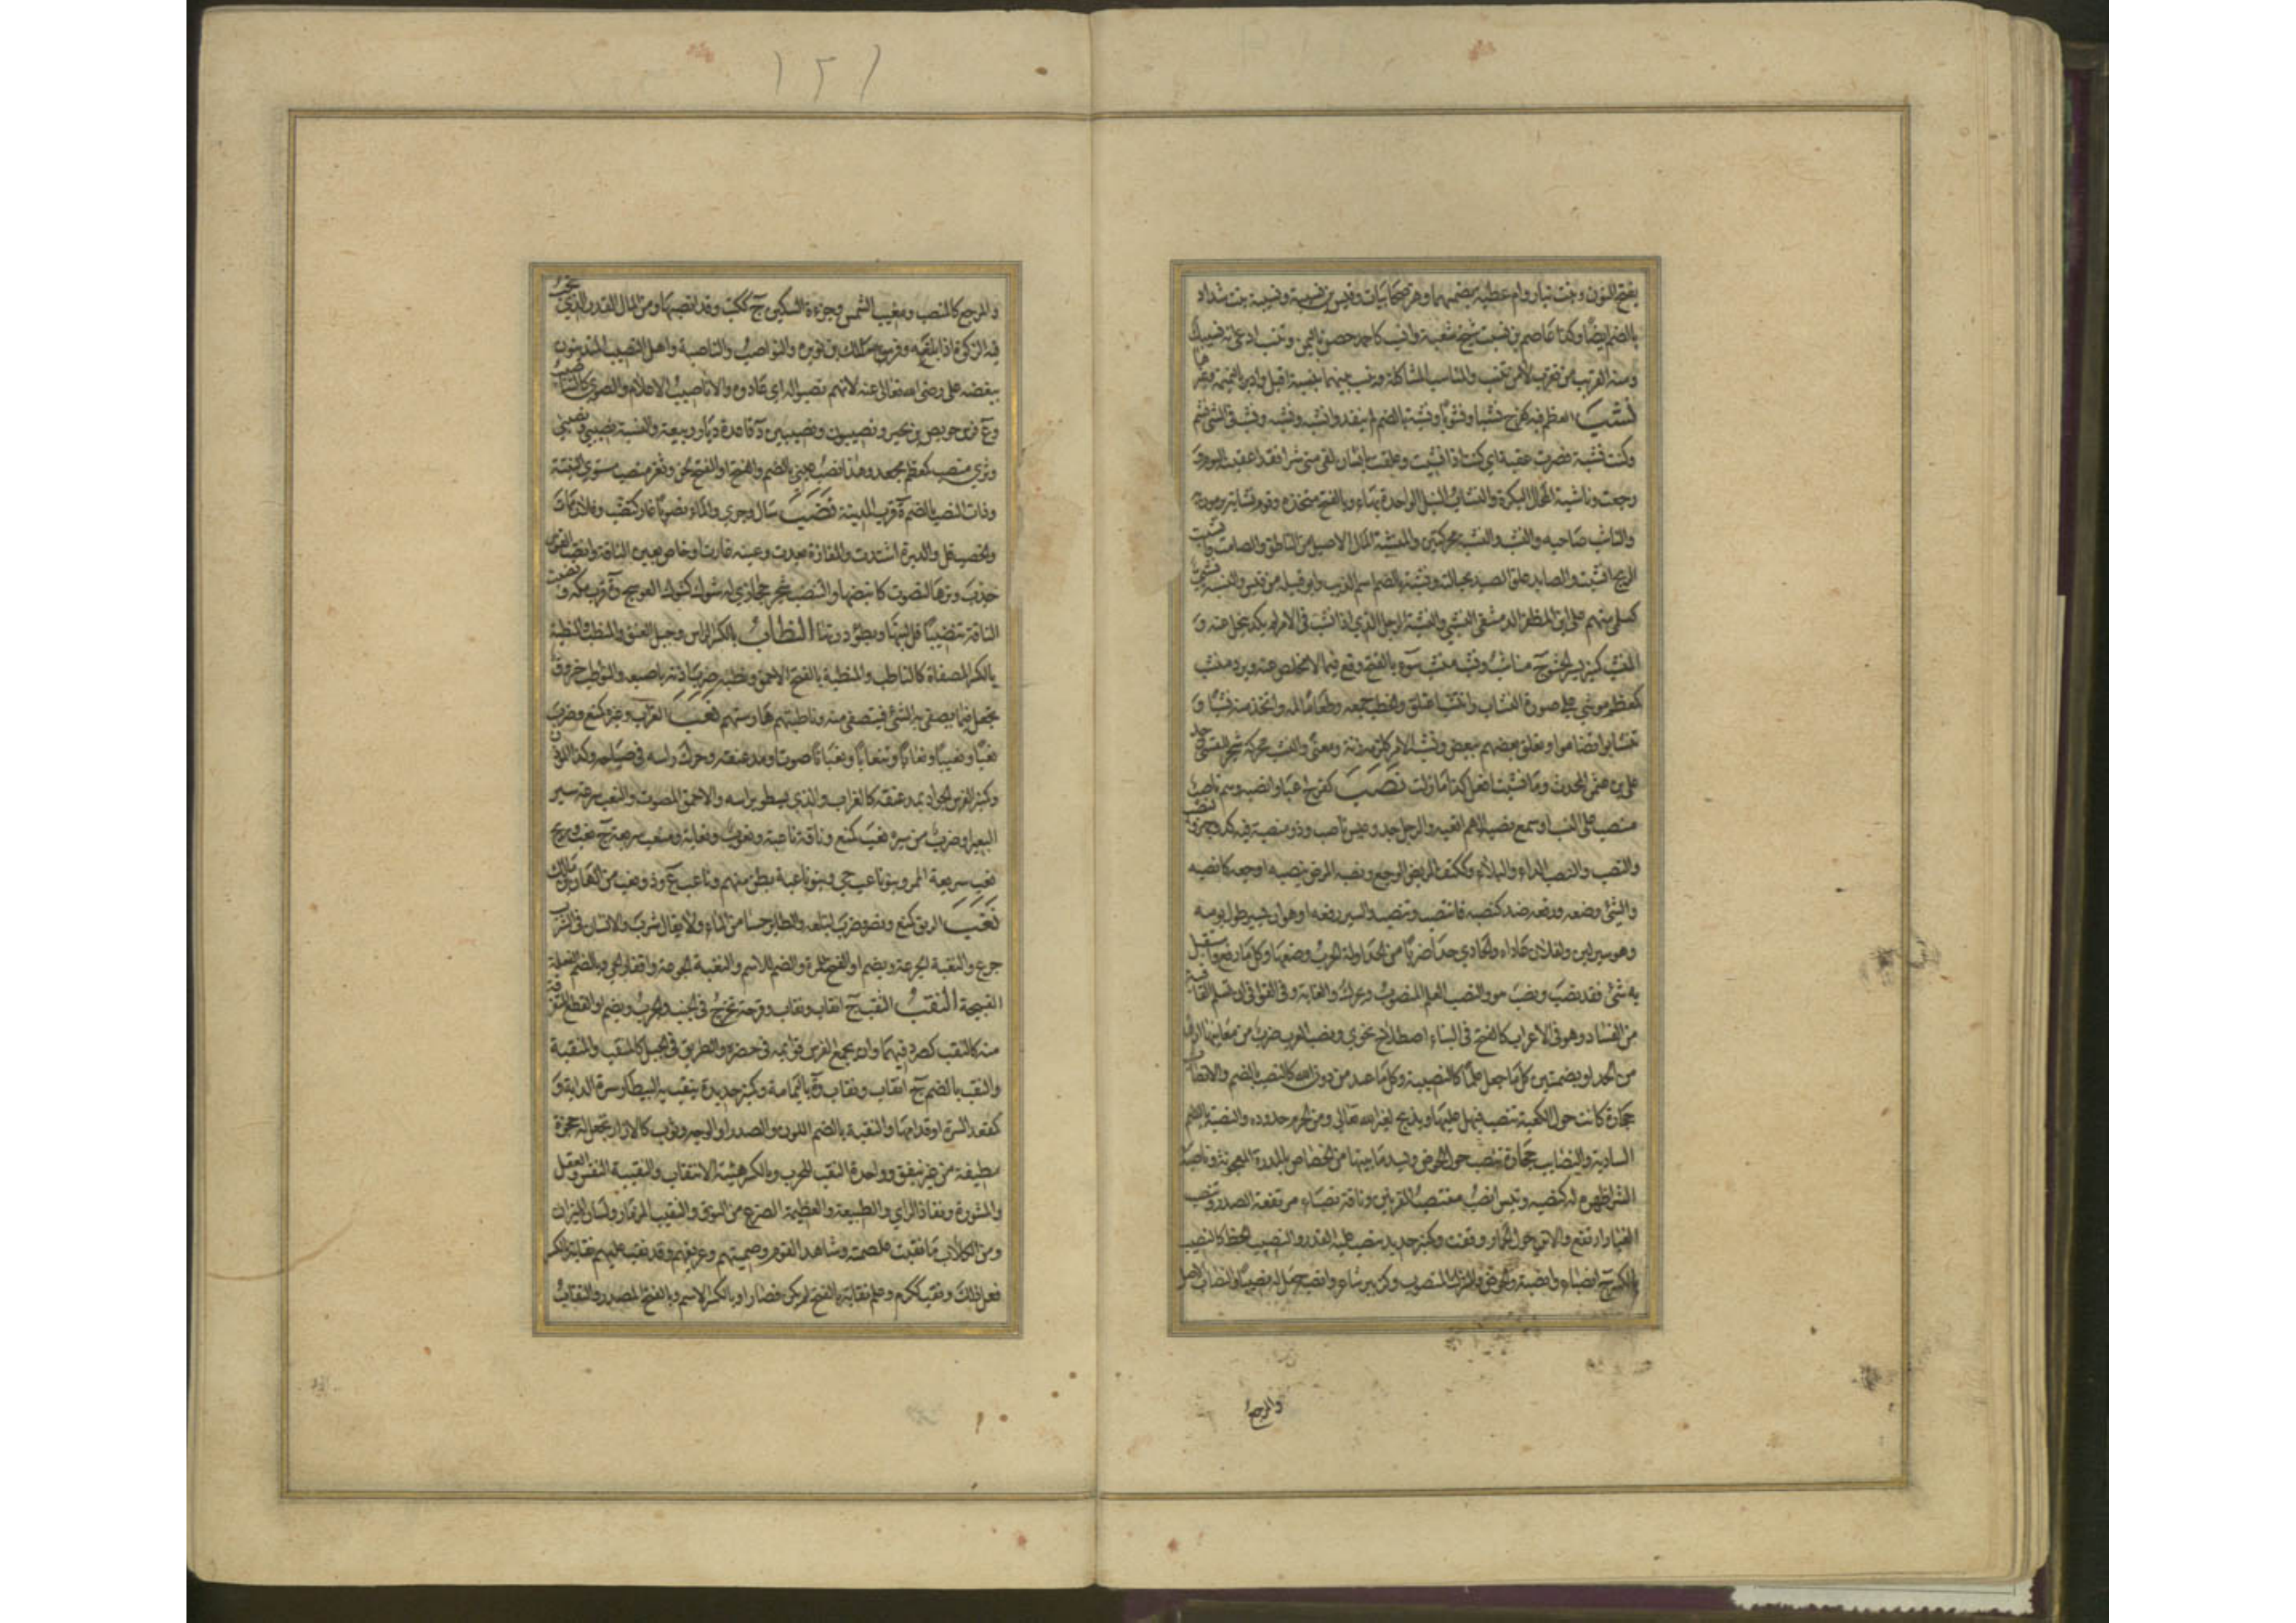 بفتح النون وبنت نيار وام عطية بضمهما وهن صحابيات وقيس بن نسيبة ونسيبة بنت شداد
بالضم ايضا وكذا عاصم بن نسيب شيخ شعبة وانسب كاحمد حصن باليمن وتنسب ادعى انه نسيبك
ومنه القريب من تقرب لا من تنسب والمناسب المشاكلة ونيسب بينهما نيسبة اقبل وادبر بالنميمة وغيرها
نشب العظم فيه كفرح نشبا ونشوبا ونشبة بالضم لم ينفذ وانشبه ونشبه ونشب في الشئ نشم
وكنت نشبة فصرت عقبة اي كنت اذا نشبت وعلقت بانسان لقي مني شرا فقد اعقبت اليوم و
رجعت وناشبة المحال البكرة والنشاب النبل الواحدة بهاء وبالفتح متخذه وقوم نشابة يرمون به
والناشب صاحبه والنشب والنشبة محركتين والمنشبة المال الاصيل من الناطق والصامت وانشبت
الريح انشبت والصايد علق الصيد بحباله ونشبة بالضم اسم الذيب وابو قبيلة من قيس والنسبة نشبي
كسلمى منهم علي بن المظفر الدمشقي النشبي والنشبة الرجل الذي اذا نشب في الامر لم يكد ينحل عنه و
المنشب كمنبر بسر الخشو ج مناشب ونشبة منشب سوء بالفتح وقع فيما لا مخلص عنه وبرد منشب
كمعظم موشي على صورة النشاب وانتشب اعتلق والحطب جمعه وطعاما لمه واتخذ منه نشبا و
تناشبوا تضاموا وتعلق بعضهم ببعض ونشبه الامر كلزمه زنة ومعنى والنشب محركة شجر للقسي وجد
علي بن عثمن المحدث وما نشبت افعل كذا ما زلت نصب كفرح اعيا وانصبه وهم ناصب
منصب على النسب او سمع نصبه الهم اتعبه والرجل جد وعيش ناصب وذو منصبة فيه كد وجهد والنصب
والنصب والنصب الداء والبلاء وككتف المريض الوجع ونصبه المرض ينصبه اوجعه كانصبه
والشئ وضعه ورفعه ضد كنصبه فانتصب وتنصب والسير رفعه او هو ان يسير طول يومه
وهو سير لين ولفلان عاداه والحادي حدا ضربا من الحداء وله الحرب وضعها وكل ما رفع واستقبل
به شئ فقد نصب ونصب هو والنصب العلم المنصوب ويحرك والغاية وفي القوافي ان تسلم القافية
من الفساد وهو في الاعراب كالفتح في البناء اصطلاح نحوي ونصب العرب ضرب من مغانيها ارق
من الحداء وبضمتين كل ما جعل علما كالنصيبة وكل ما عبد من دون الله كالنصب بالضم والانصاب
حجارة كانت حول الكعبة تنصب فيهل عليها ويذبح لغير الله تعالى ومن الحرم حدوده والنصبة بالضم
السارية والنصايب حجارة تنصب حول الحوض ويسد ما بينها من الخصاص بالمدرة المعجونة وناصبه
الشر اظهره له كنصبه وتيس انصب منتصب القرنين وناقة نصباء مرتفعة الصدر وتنصب
الغبار ارتفع والاتن حول الحمار وقفت وكمنبر حديد ينصب عليه القدر والنصيب الحظ كالنصب
بالكسر ج انصباء وانصبة والحوض والشرك المنصوب وكزبير شاعر وانصبه جعل له نصيبا والنصاب الاصل
والمرجع
والمرجع كالمنصب ومغيب الشمس وجزءة السكين ج ككتب وقد انصبها ومن المال القدر الذي تجب
فيه الزكوة اذا بلغه وفرس مالك بن نويرة والنواصب والناصبة واهل النصب المتدينون
ببغضه على رضى الله تعالى عنه لانهم نصبوا له اي عادوه والاناصيب الاعلام والصوى كالتناصيب
وع وفرس حويص بن بجير ونصيبون ونصيبين د قاعدة ديار ربيعة والنسبة نصيبي ونصيبيني
وثرى منصب كمعظم مجعد وهذا نصب عيني بالضم والفتح او الفتح لحن وثغر منصب مستوي النبتة
وذات النصب بالضم ة قرب المدينة نضب سال وجرى والماء نضوبا غار كنضب وفلان مات
والخصب قل والدبرة اشتدت والمفازة بعدت وعينه غارت او خاص بعين الناقة وانضب القوس
جذب وترها لتصوت كانبضها والتنضب شجر حجازي له شوك كشوك العوسج و ة قرب مكة ونضبت
الناقة تنضيبا قل لبنها وبطؤ درتها النطاب بالكسر الراس وحبل العنق والمنطب والمنطبة
بالكسر المصفاة كالناطب والمنطبة بالفتح الاحمق ونطبه ضرب اذنه باصبعه والنواطب خروق
تجعل فيما يصفى به الشئ فيتصفى منه وناطبتهم هارشتهم نعب الغراب وغيره كمنع وضرب
نعبا ونعيبا ونعابا وتنعابا ونعبانا صوت او مد عنقه وحرك راسه في صياحه وكذا المؤذن
وكمنبر الفرس الجواد يمد عنقه كالغراب والذي يسطو براسه والاحمق المصوت والنعب سرعة سير
البعير او ضرب من سيره نعب كمنع وناقة ناعبة ونعوب ونعابة ومنعب سريعة ج نعب وريح
نعب سريعة الممر وبنو ناعب حي وبنو ناعبة بطن منهم وناعب ع وذو نعب من الهان بن مالك
نغب الريق كمنع ونصر وضرب ابتلعه والطاير حسا من الماء ولا يقال شرب والانسان في الشرب
جرع والنغبة الجرعة ويضم او الفتح للمرة والضم للاسم والنغبة الجوعة واقفار الحي وبالضم الفعلة
القبيحة النقب الثقب ج انقاب ونقاب وقرحة تخرج في الجنب والجرب ويضم او القطع المتفرقة
منه كالنقب كصرد فيهما وان يجمع الفرس قوايمه في حضره والطريق في الجبل كالمنقب والمنقبة
والنقب بالضم ج انقاب ونقاب و ة باليمامة وكمنبر حديدة ينقب بها البيطار سرة الدابة و
كمقعد السرة او قدامها والنقبة بالضم اللون والصدا والوجه وثوب كالازار تجعل له حجزة
مطيفة من غير نيفق وواحدة النقب للجرب وبالكسر هيئة الانتقاب والنقيبة النفس والعقل
والمشورة ونفاذ الراي والطبيعة والعظيمة الضرع من النوق والنقيب المزمار ولسان الميزان
ومن الكلاب ما نقبت غلصمته وشاهد القوم وضمينهم وعريفهم وقد نقب عليهم نقابة بالكسر
فعل ذلك ونقب ككرم وعلم نقابة بالفتح لم يكن فصار او بالكسر الاسم وبالفتح المصدر والنقاب